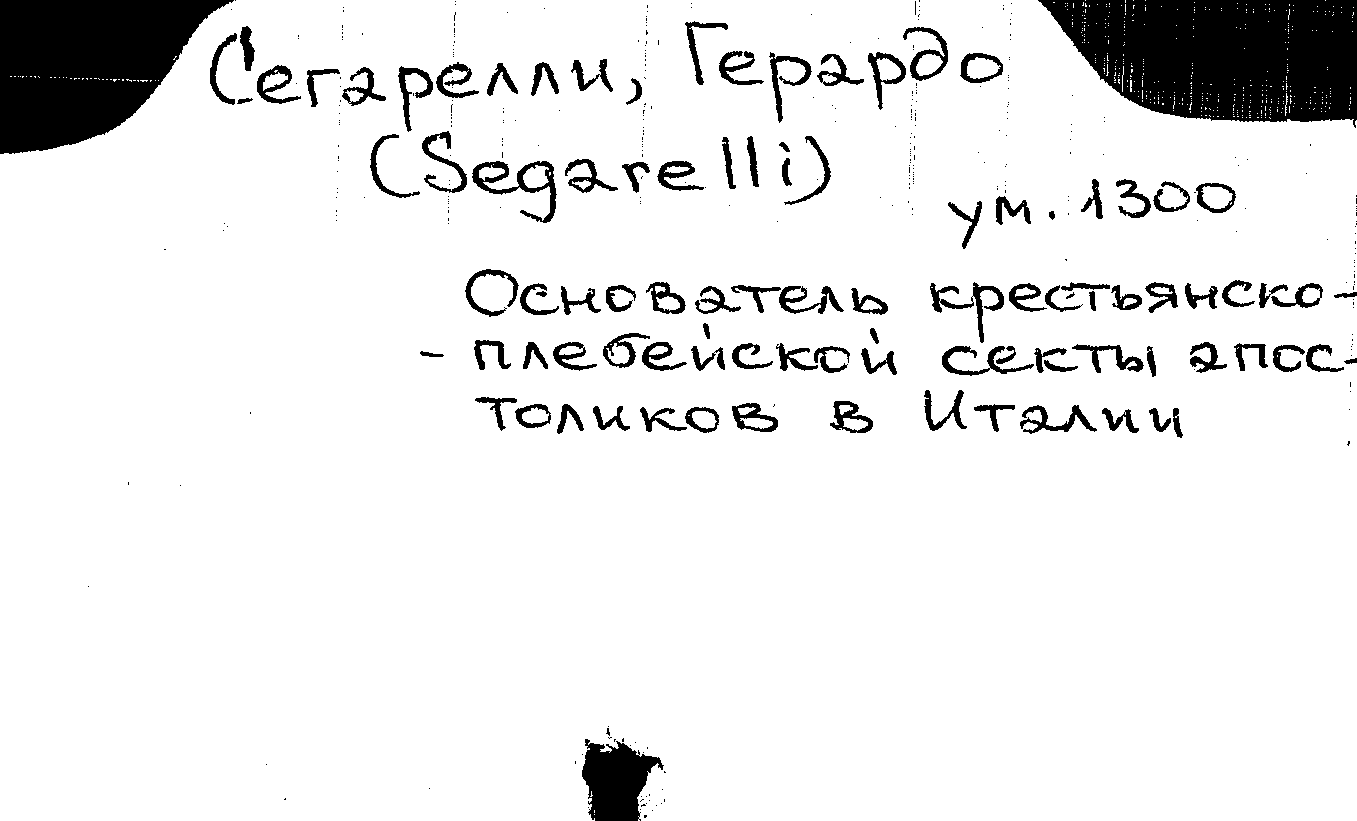 Сегарелли, Герардо
(Segarelli)
ум. 1300
Основатель крестьянско-
- плебейской секты апос-
толиков в Италии